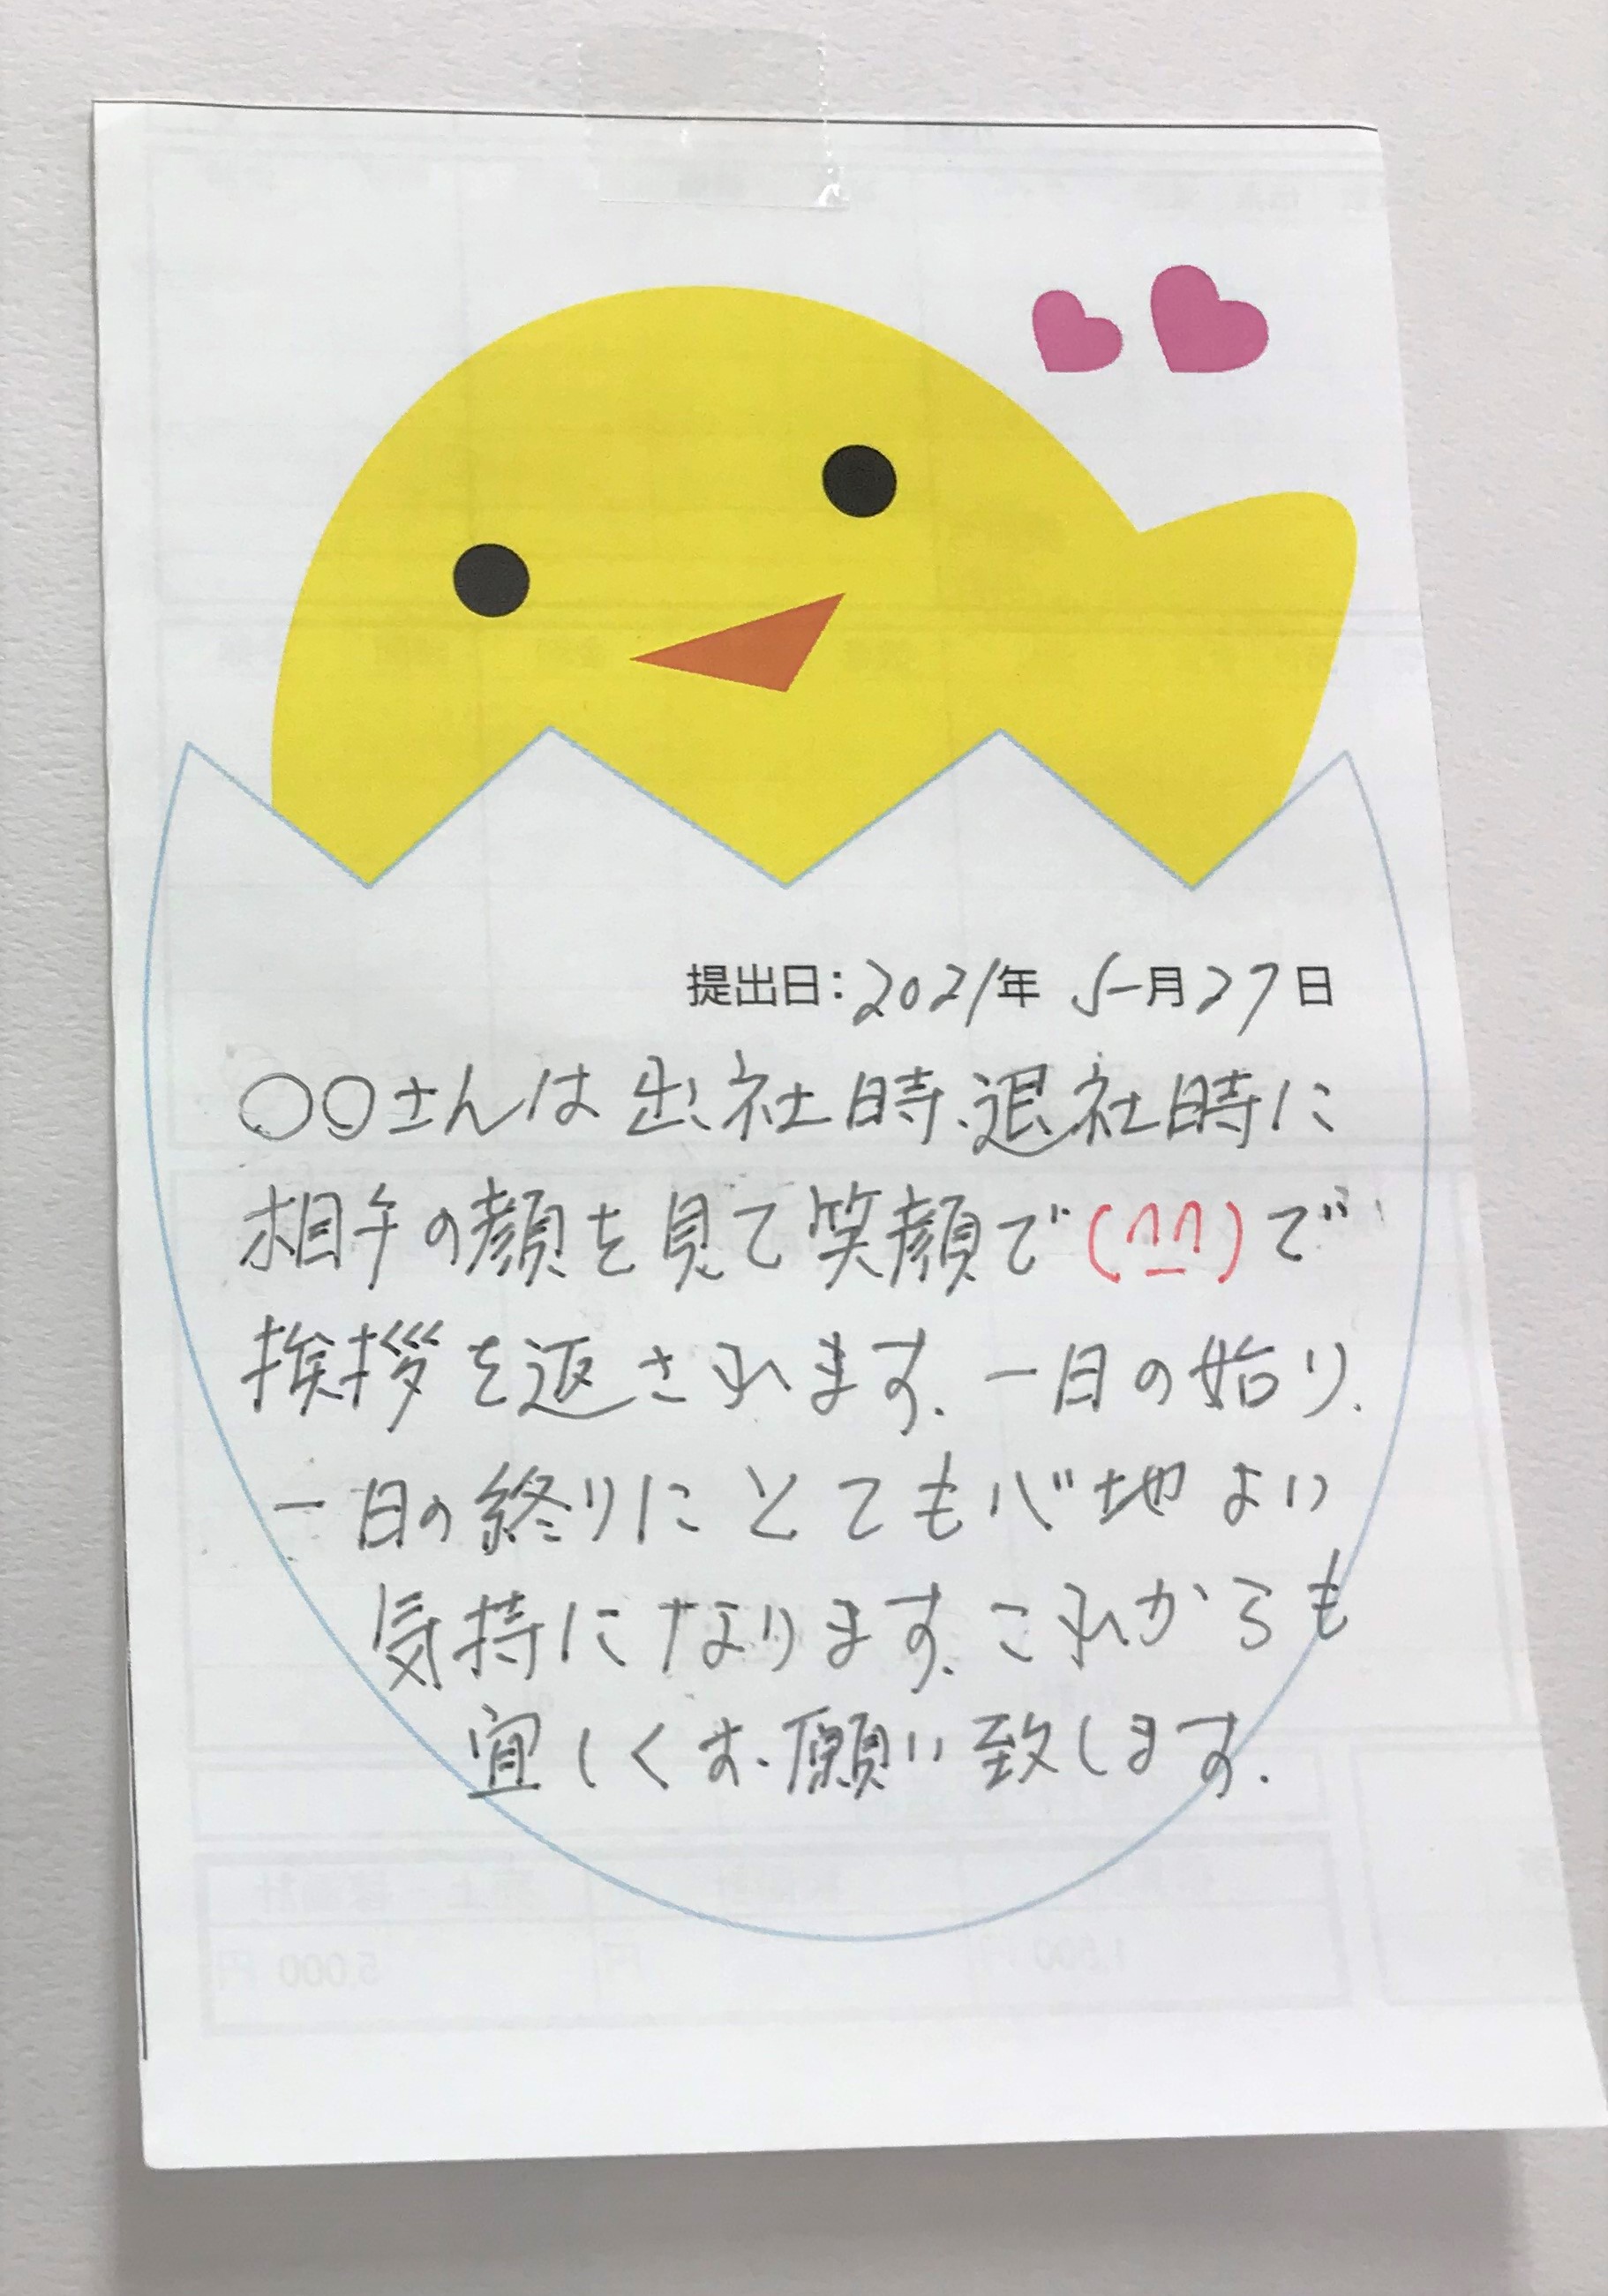 提出日：2021年 5月27日
〇〇さんは出社時、退社時に
相手の顔を見て笑顔で(^_^)で
挨拶を返されます。一日の始り、
一日の終りにとても心地よい
気持になります。これからも
宜しくお願い致します。